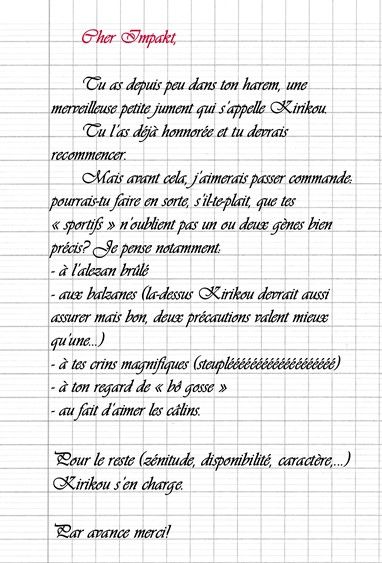 Cher Impakt,
Tu as depuis peu dans ton harem, une
merveilleuse petite jument qui s'appelle Kirikou.
Tu l'as déjà honnorée et tu devrais
recommencer.
Mais avant cela, j'aimerais passer commande:
pourrais-tu faire en sorte, s'il-te-plait, que tes
« sportifs » n'oublient pas un ou deux gènes bien
précis? Je pense notamment:
- à l'alezan brûlé
- aux balzanes (la-dessus Kirikou devrait aussi
assurer mais bon, deux précautions valent mieux
qu'une...)
- à tes crins magnifiques (steupléééééééééééééééééééé)
- à ton regard de « bô gosse »
- au fait d'aimer les câlins.
Pour le reste (zénitude, disponibilité, caractère,...)
Kirikou s'en charge.
Par avance merci!